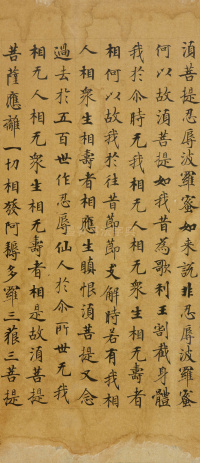 湏菩提忍辱波羅蜜如来說非忍辱波羅蜜
何以故湏菩提如我昔為歌利王割截身體
我於尒時无我相无人相无衆生相无壽者
相何以故我於往昔節節支解時若有我相
人相衆生相壽者相應生瞋恨湏菩提又念
過去於五百世作忍辱仙人於尒所世无我
相无人相无衆生相无壽者相是故湏菩提
菩薩應離一切相發阿耨多羅三藐三菩提